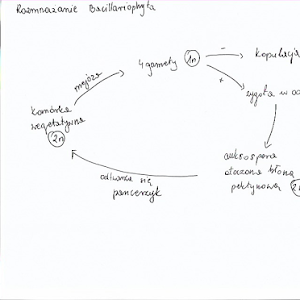 Rozmnażanie Bacillariophyta
mejoza
4 gamety 1n
−
kopulacja
+
zygota w
komórka
wegetatywna
2n
auksospora
otoczona błoną
pektynową
odtwarza się
pancerzyk